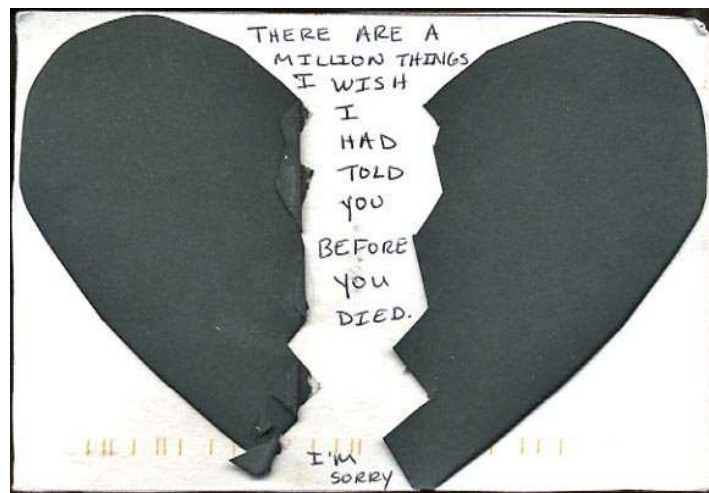 THERE ARE A
MILLION THINGS
I WISH
I
HAD
TOLD
YOU
BEFORE
YOU
DIED.
I'M
SORRY